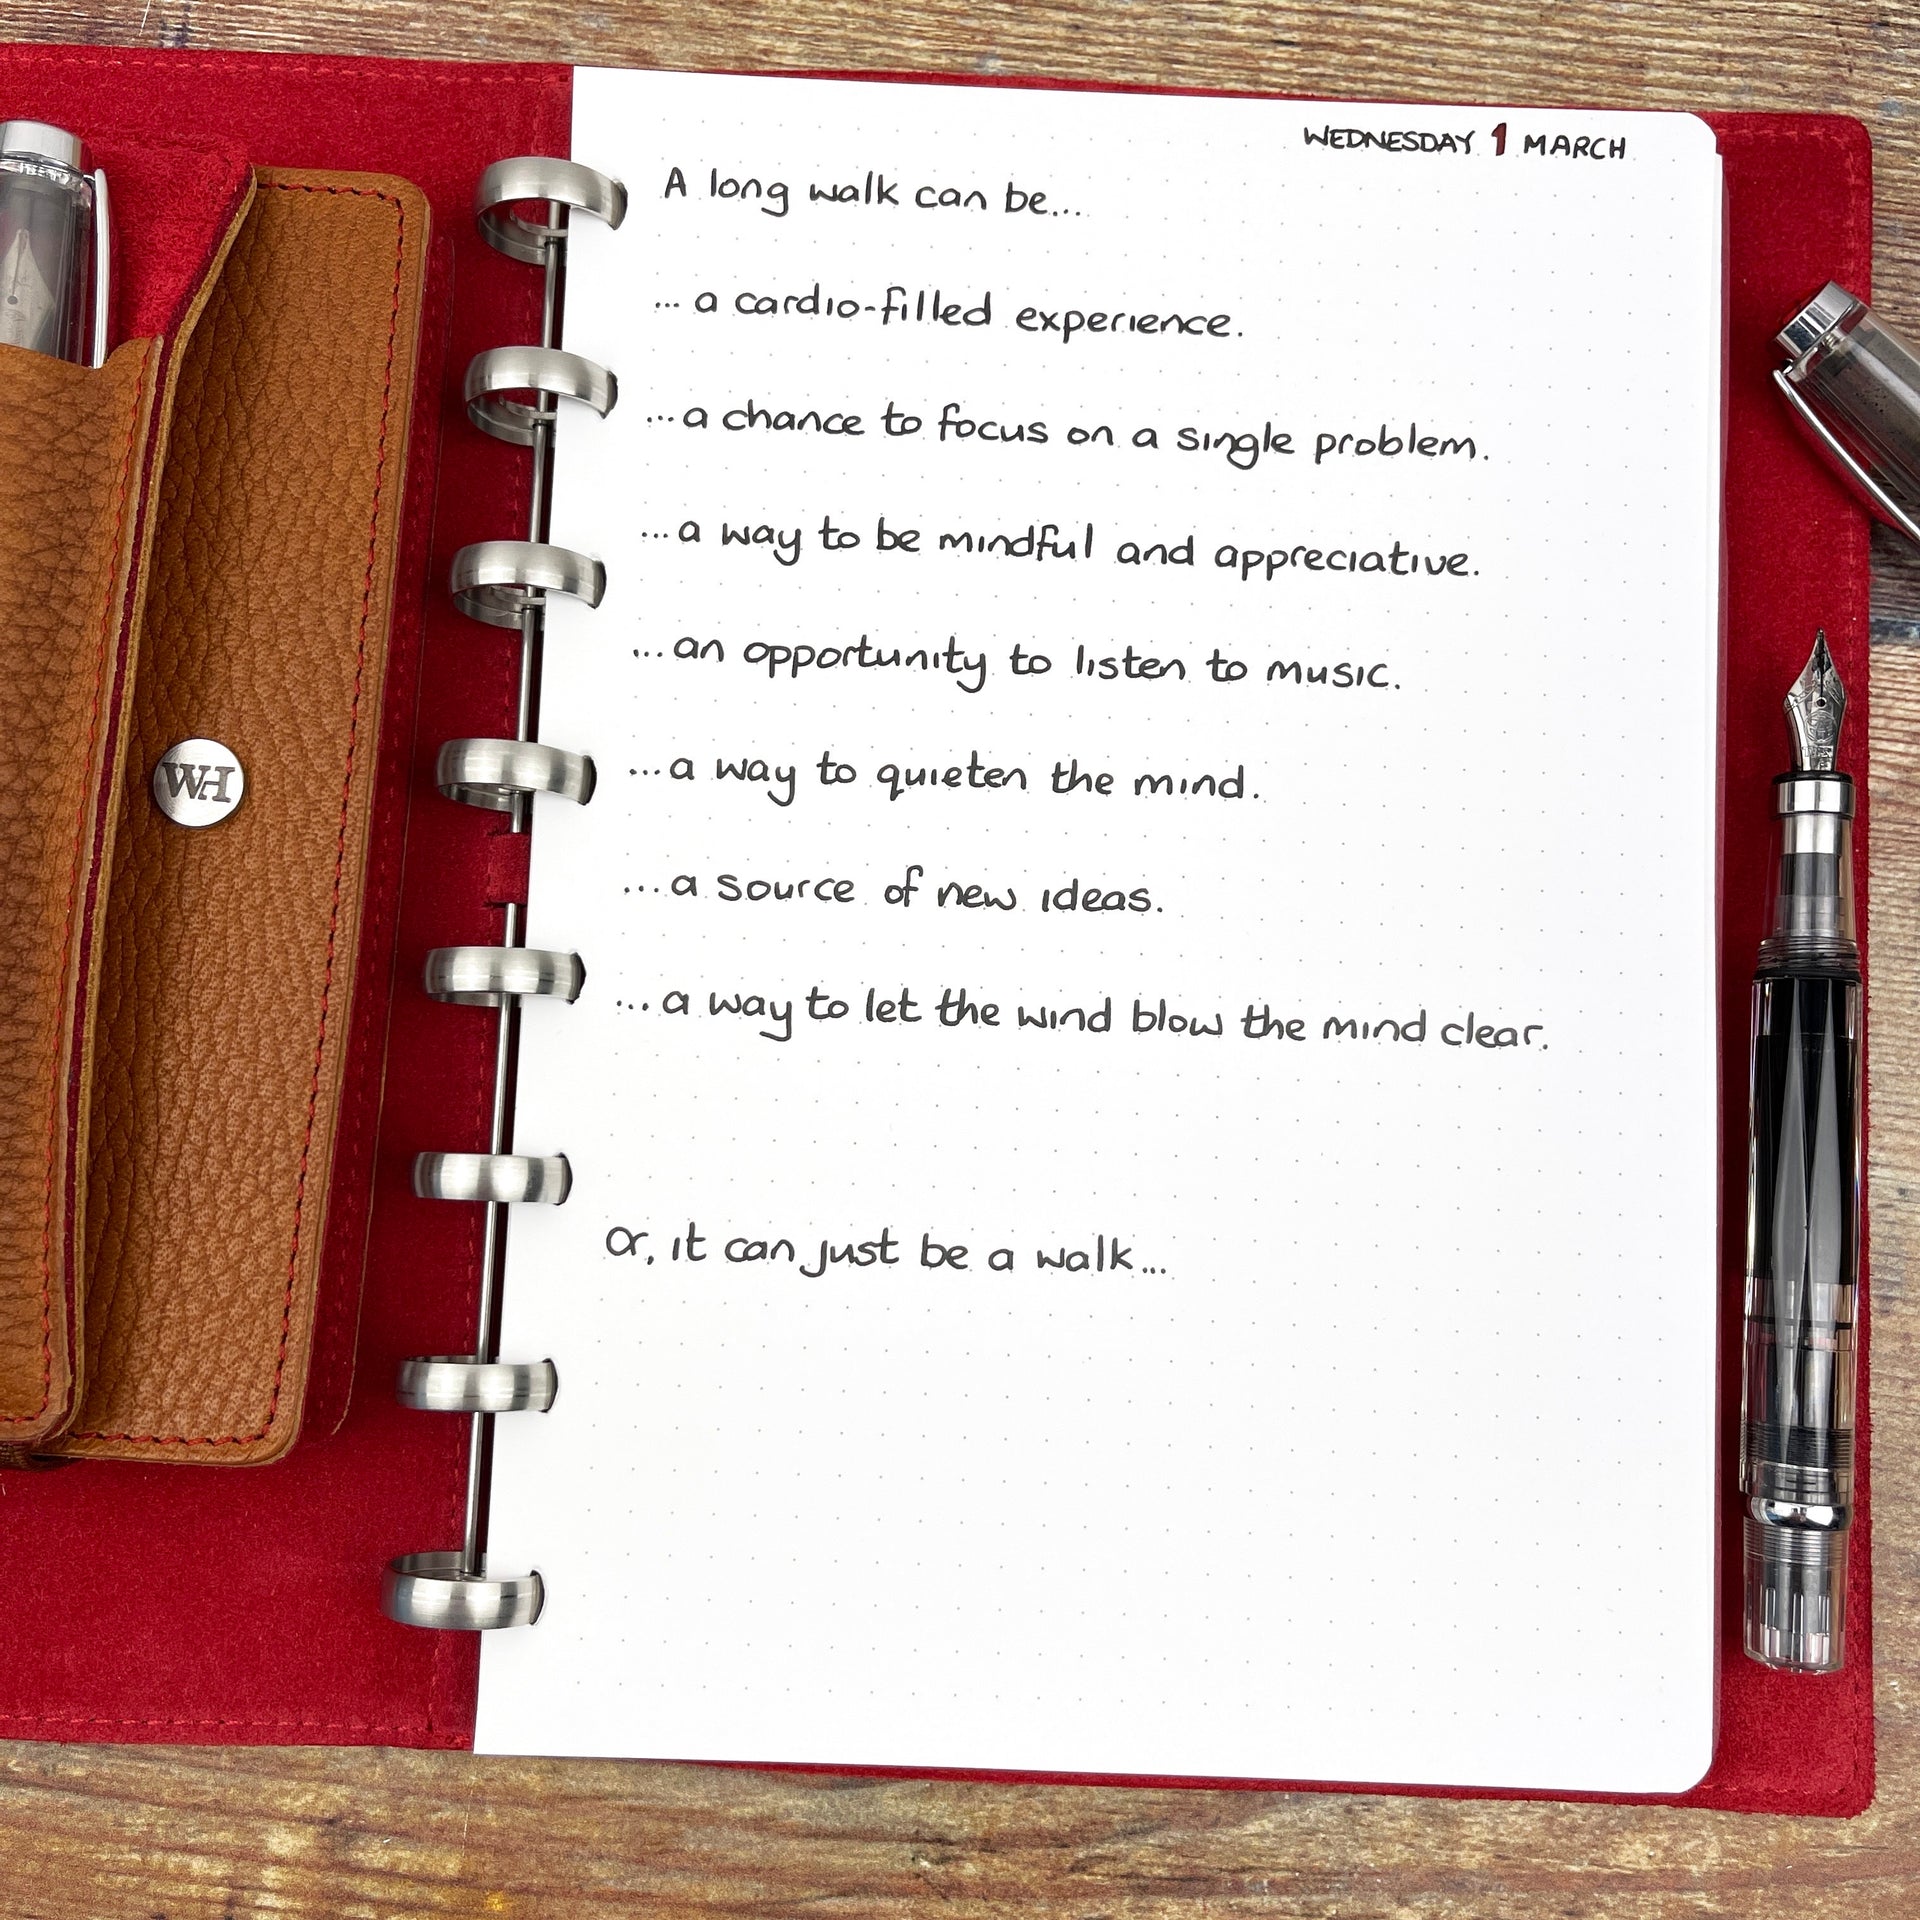 WEDNESDAY 1 MARCH
A long walk can be...
... a cardio-filled experience.
...a chance to focus on a single problem.
...a way to be mindful and appreciative.
...an opportunity to listen to music.
...a way to quieten the mind.
...a source of new ideas.
...a way to let the wind blow the mind clear.
Or, it can just be a walk...
WH